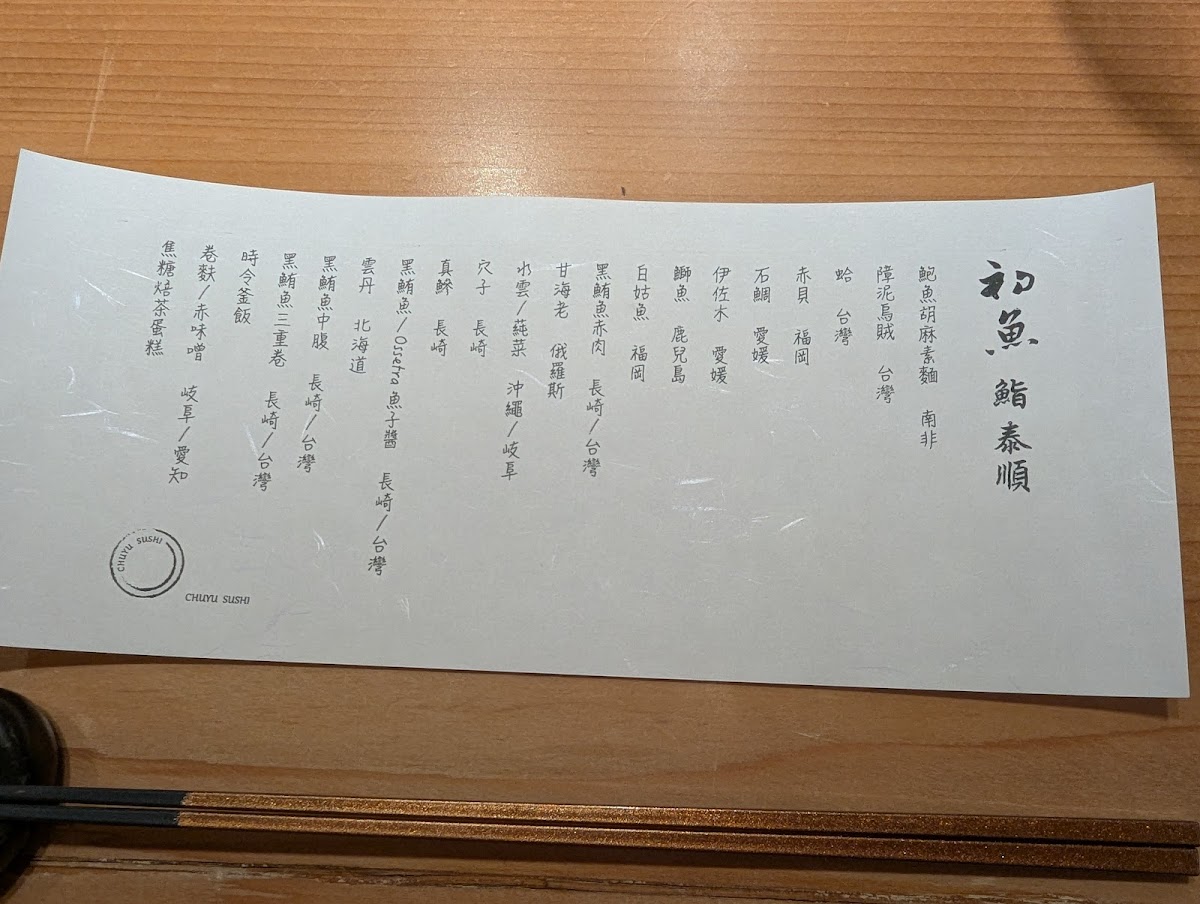 初魚 鮨 泰順
鮑魚胡麻素麵 南非
障泥烏賊 台灣
蛤 台灣
赤貝 福岡
石鯛 愛媛
伊佐木 愛媛
鰤魚 鹿兒島
白姑魚 福岡
黑鮪魚赤肉 長崎/台灣
甘海老 俄羅斯
水雲/蒓菜 沖繩/岐阜
穴子 長崎
真鰺 長崎
黑鮪魚/Ossetra魚子醬 長崎/台灣
雲丹 北海道
黑鮪魚中腹 長崎/台灣
黑鮪魚三重卷 長崎/台灣
時令釜飯
卷麩/赤味噌 岐阜/愛知
焦糖焙茶蛋糕
CHUYU SUSHI
CHUYU SUSHI